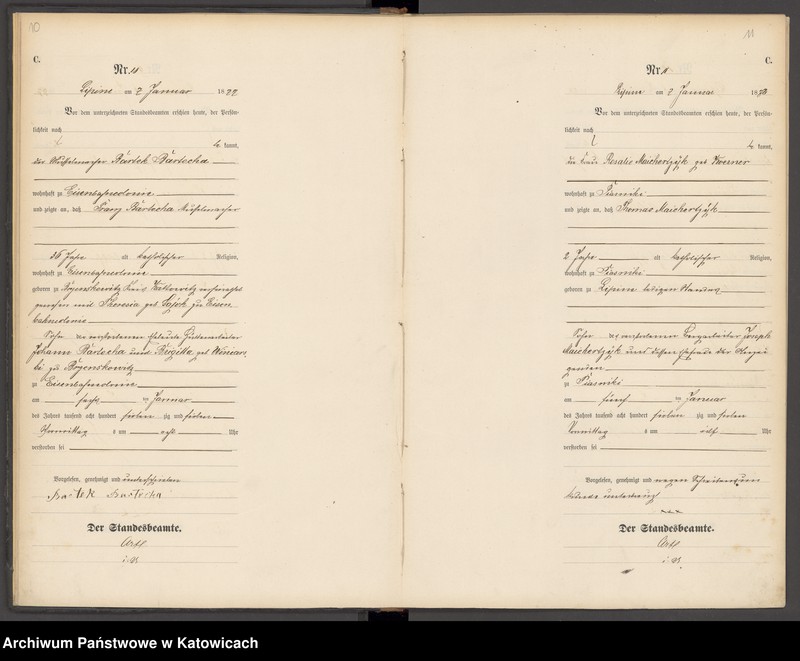 10
C.
Nr. 11
Lipine am 7 Januar 1877
Vor dem unterzeichneten Standesbeamten erschien heute, der Persön-
lichkeit nach
kannt,
der Bartek Bartecha
wohnhaft zu Eisenbahndomie
und zeigte an, daß Franz Bartecha
56 Jahr alt katholischer Religion,
wohnhaft zu Eisenbahndomie
geboren zu Kreis
gewesen mit Theresia geb zu Eisen
bahndomie
Sohn der verstorbenen Eheleute
Johann Bartecha und Brigitta geb
zu
zu Eisenbahndomie
am sechs ten Januar
des Jahres tausend acht hundert sieben zig und sieben
Vormittag s um acht Uhr
verstorben sei
Vorgelesen, genehmigt und unterschrieben
Bartek Bartecha
Der Standesbeamte.
11
C.
Nr.
Lipine am 7 Januar 18
Vor dem unterzeichneten Standesbeamten erschien heute, der Persön-
lichkeit nach
kannt,
die Frau Rosalie Maichertzÿk geb Woerner
wohnhaft zu Piasniki
und zeigte an, daß Thomas Maichertzÿk
2 Jahr alt katholischer Religion,
wohnhaft zu Piasniki
geboren zu Lipine ledigen Standes
Sohn des verstorbenen Bergarbeiter Joseph
Maichertzÿk und dessen Ehefrau der Anzei
gerin
zu Piasniki
am fünf ten Januar
des Jahres tausend acht hundert sieben zig und sieben
Vormittag s um elf Uhr
verstorben sei
Vorgelesen, genehmigt und wegen Schreibensun
kunde unterkreuzt
xxx
Der Standesbeamte.
Archiwum Państwowe w Katowicach